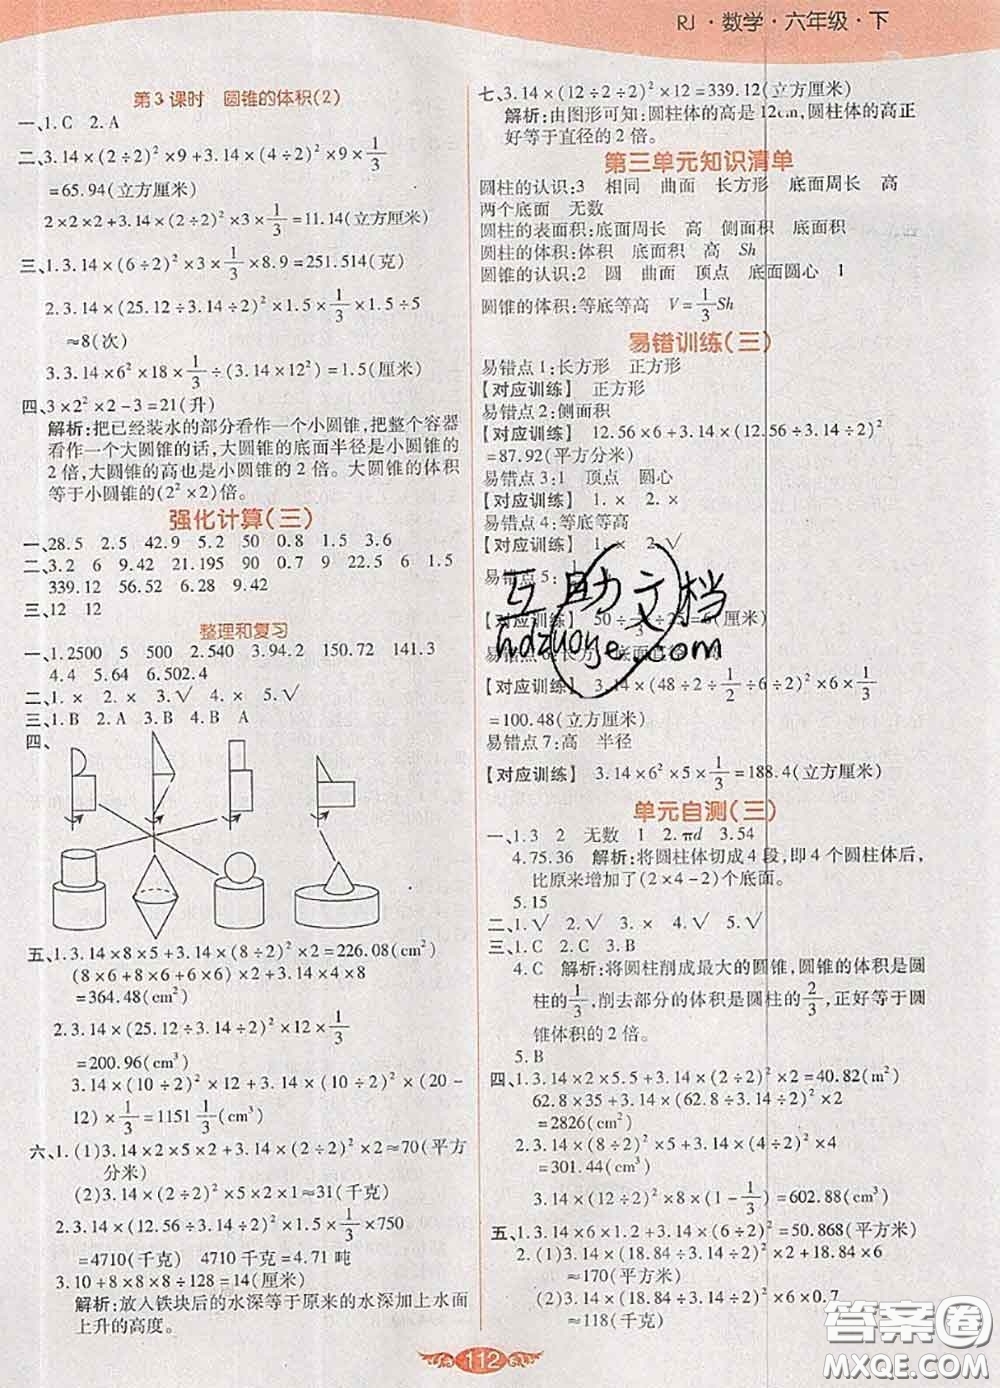 RJ·数学·六年级·下
第3课时　圆锥的体积(2)
一、1.C　2.A
二、3.14×(2÷2)²×9+3.14×(4÷2)²×9×1/3
=65.94(立方厘米)
2×2×2+3.14×(2÷2)²×3×1/3=11.14(立方厘米)
三、1.3.14×(6÷2)²×3×1/3×8.9=251.514(克)
2.3.14×(25.12÷3.14÷2)²×1.5×1/3×1.5÷5
≈8(次)
3.3.14×6²×18×1/3÷(3.14×12²)=1.5(厘米)
四、3×2²×2-3=21(升)
解析:把已经装水的部分看作一个小圆锥,把整个容器
看作一个大圆锥的话,大圆锥的底面半径是小圆锥的
2倍,大圆锥的高也是小圆锥的2倍。大圆锥的体积
等于小圆锥的(2²×2)倍。
强化计算(三)
一、28.5　2.5　42.9　5.2　50　0.8　1.5　3.6
二、3.2　6　9.42　21.195　90　0.9　22.5　6　1.5
339.12　56.52　6.28　9.42
三、12　12
整理和复习
一、1.2500　5　500　2.540　3.94.2　150.72　141.3
4.4　5.64　6.502.4
二、1.×　2.×　3.√　4.×　5.√
三、1.B　2.A　3.B　4.B　A
四、
五、1.3.14×8×5+3.14×(8÷2)²×2=226.08(cm²)
(8×6+8×6+6×6)×2+3.14×4×8
=364.48(cm²)
2.3.14×(25.12÷3.14÷2)²×12×1/3
=200.96(cm³)
3.14×(10÷2)²×12+3.14×(10÷2)²×(20-
12)×1/3=1151 1/3(cm³)
六、1.(1)3.14×2×5×2+3.14×(2÷2)²×2≈70(平方
分米)
(2)3.14×(2÷2)²×5×2×1≈31(千克)
2.3.14×(12.56÷3.14÷2)²×1.5×1/3×750
=4710(千克)　4710千克=4.71吨
3.10+8×8×8÷128=14(厘米)
解析:放入铁块后的水深等于原来的水深加上水面
上升的高度。
七、3.14×(12÷2÷2)²×12=339.12(立方厘米)
解析:由图形可知:圆柱体的高是12cm,圆柱体的高正
好等于直径的2倍。
第三单元知识清单
圆柱的认识:3　相同　曲面　长方形　底面周长　高
两个底面　无数
圆柱的表面积:底面周长　高　侧面积　底面积
圆柱的体积:体积　底面积　高　Sh
圆锥的认识:2　圆　曲面　顶点　底面圆心　1
圆锥的体积:等底等高　V=1/3Sh
易错训练(三)
易错点1:长方形　正方形
【对应训练】　正方形
易错点2:侧面积
【对应训练】　12.56×6+3.14×(12.56÷3.14÷2)²
=87.92(平方分米)
易错点3:1　顶点　圆心
【对应训练】　1.×　2.×
易错点4:等底等高
【对应训练】　1.×　2.√
易错点5:
【对应训练】　50÷1/3÷25=6(厘米)
易错点6:长方　底面直径
【对应训练】　3.14×(48÷2÷1/2÷6÷2)²×6×1/3
=100.48(立方厘米)
易错点7:高　半径
【对应训练】　3.14×6²×5×1/3=188.4(立方厘米)
单元自测(三)
一、1.3　2　无数　1　2.πd　3.54
4.75.36　解析:将圆柱体切成4段,即4个圆柱体后,
比原来增加了(2×4-2)个底面。
5.15
二、1.√　2.×　3.√　4.√　5.√
三、1.C　2.C　3.B
4.C　解析:将圆柱削成最大的圆锥,圆锥的体积是圆
柱的1/3,削去部分的体积是圆柱的2/3,正好等于圆
锥体积的2倍。
5.B
四、1.3.14×2×5.5+3.14×(2÷2)²×2=40.82(m²)
62.8×35+3.14×(62.8÷3.14÷2)²×2
=2826(cm²)
2.3.14×(8÷2)²×5+3.14×(4÷2)²×4
=301.44(cm³)
3.14×(12÷2)²×8×(1-1/3)=602.88(cm³)
五、1.3.14×6×1.2+3.14×(6÷2)²=50.868(平方米)
2.(1)3.14×(18.84÷3.14÷2)²×2+18.84×6
≈170(平方米)
(2)3.14×(18.84÷3.14÷2)²×6×0.7
≈118(千克)
互助文档
hdzuoye.com
答案圈
MXQE.COM
112